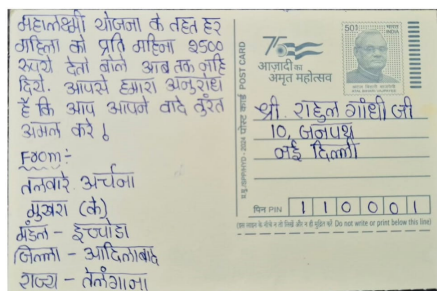 महालक्ष्मी योजना के तहत हर
महिला को प्रति महिना २५००
रुपये देतो बोले अब तक नहि
दिये. आपसे हमारा अनुरोध
है कि आप आपने वादे तुरंत
अमल करे!
From:-
तलवारे अर्चना
मुखरा (के)
मंडल - इच्चोडा
जिल्ला - आदिलाबाद
राज्य - तेलंगाना
पोस्ट कार्ड POST CARD
75
आज़ादी का
अमृत महोत्सव
501
भारत
INDIA
श्री. राहुल गांधी जी
10, जनपथ
नई दिल्ली
पिन PIN 110001
Do not write or print below this line